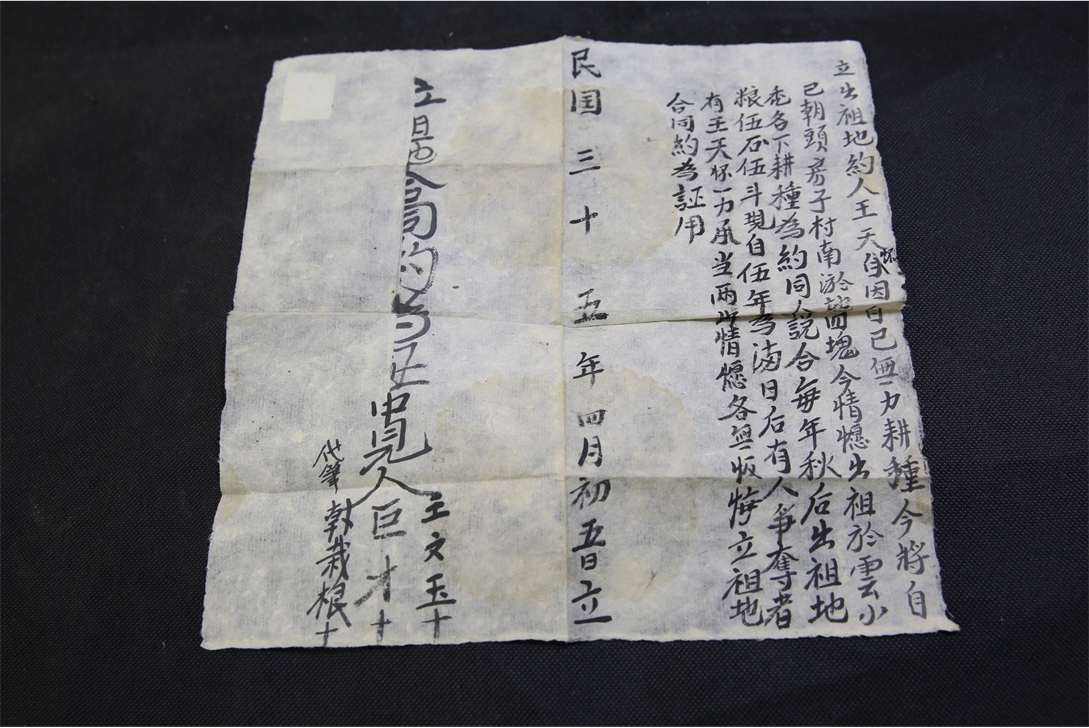 立出祖地約人王天保因自己無力耕種今將自
怀
己朝頭房子村南淤畄塊今情愿出祖於雲小
禿名下耕種為約同人說合每年秋后出祖地
粮伍石伍斗現自伍年為満日后有人爭奪者
有王天怀一力承当兩家情愿各無返悔立祖地
合同約為証用
民国三十五年四月初五日立
立且地合同約為正
中見人
王文玉十
巨才十
代筆
郭栽根十